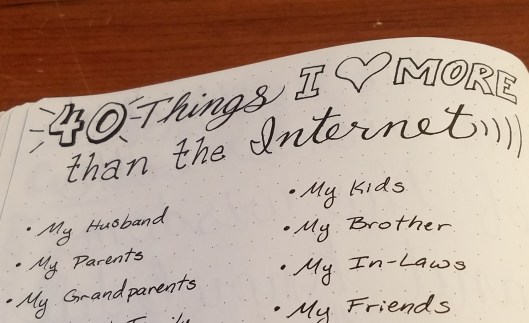 40 Things I ♡ MORE
than the Internet))))
• My Husband
• My Parents
• My Grandparents
• My Kids
• My Brother
• My In-Laws
• My Friends